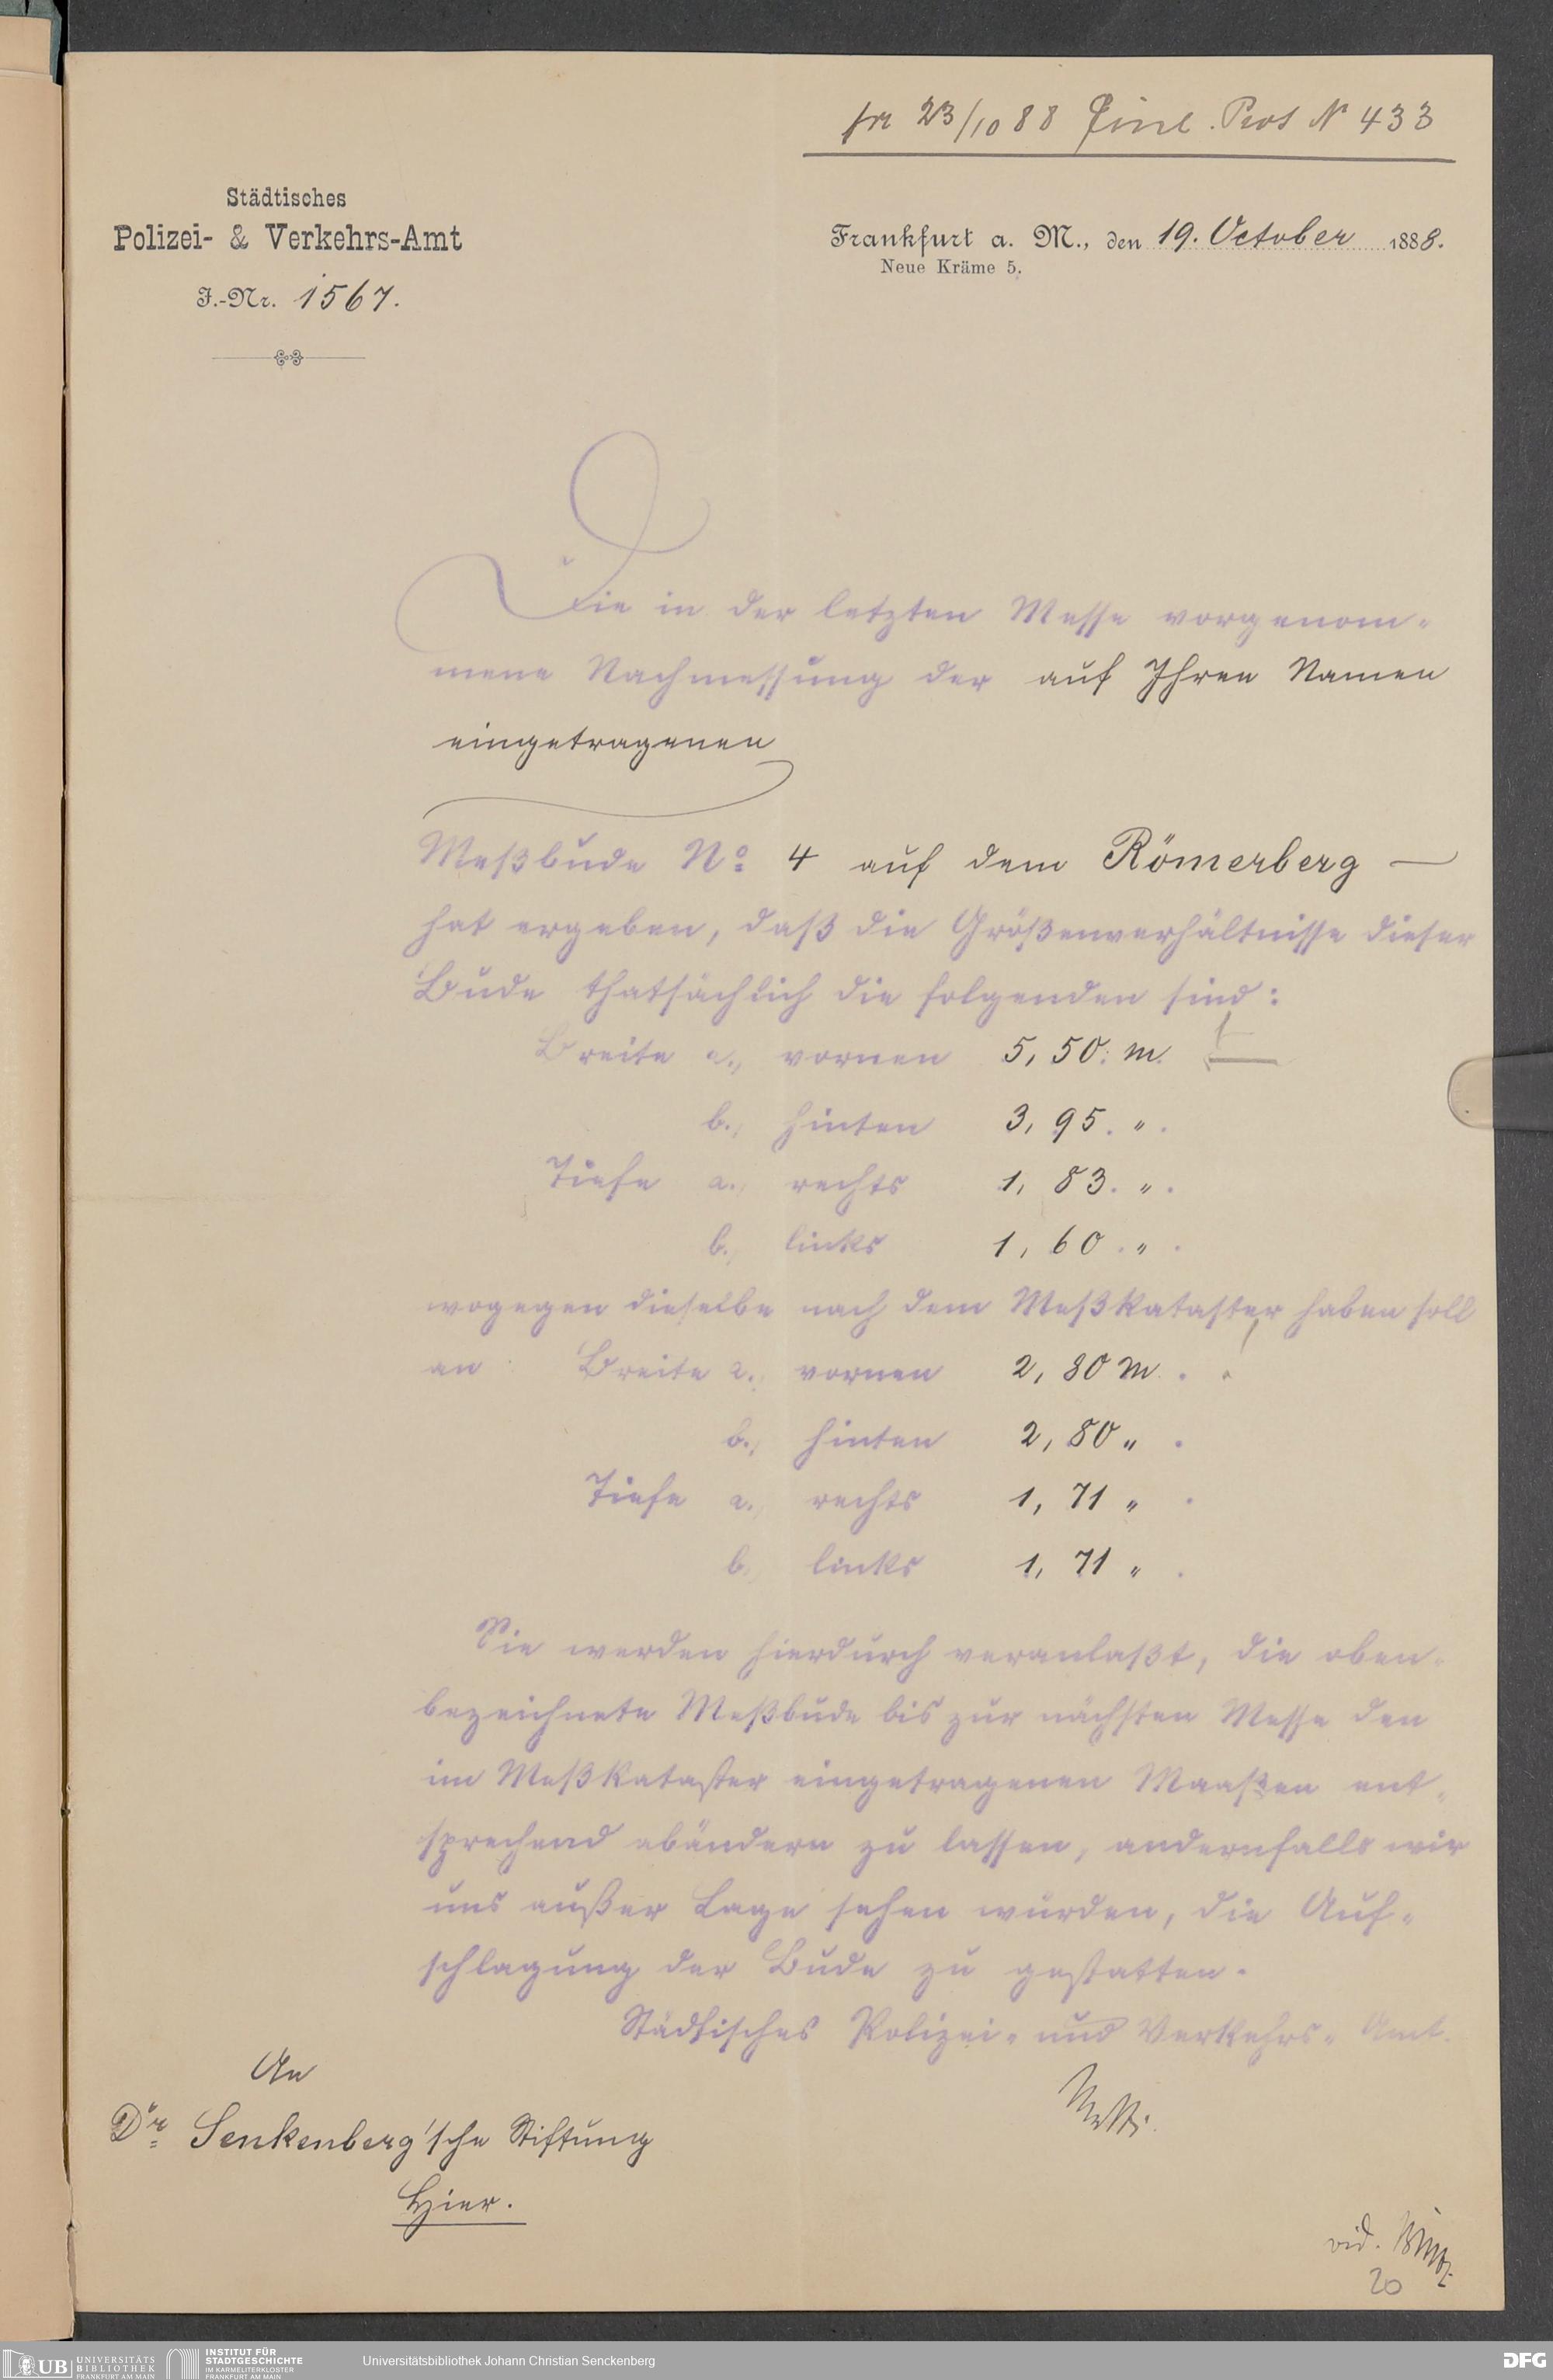 pr 23/10 88 Einl. Prot N 433
Städtisches
Polizei- & Verkehrs-Amt
J.-Nr. 1567.
Frankfurt a. M., den 19. October 1888.
Neue Kräme 5.
Die in der letzten Messe vorgenom-
mene Nachmessung der auf Ihren Namen
eingetragenen
Meßbude No. 4 auf dem Römerberg —
hat ergeben, daß die Größenverhältnisse dieser
Bude thatsächlich die folgenden sind:
Breite a., vornen 5,50. m.
b., hinten 3,95. ".
Tiefe a., rechts 1,83. ".
b., links 1,60. ".
wogegen dieselbe nach dem Meßkataster haben soll
an Breite a., vornen 2,80 m.
b., hinten 2,80 " .
Tiefe a., rechts 1,71 " .
b., links 1,71 " .
Sie werden hierdurch veranlaßt, die oben-
bezeichnete Meßbude bis zur nächsten Messe den
im Meßkataster eingetragenen Maaßen ent-
sprechend abändern zu lassen, andernfalls wir
uns außer Lage sehen würden, die Auf-
schlagung der Bude zu gestatten.
Städtisches Polizei- und Verkehrs-Amt.
An
Dr. Senkenberg'sche Stiftung
Hier.
vid.
20
UB UNIVERSITÄTS
BIBLIOTHEK
FRANKFURT AM MAIN
INSTITUT FÜR
STADTGESCHICHTE
IM KARMELITERKLOSTER
FRANKFURT AM MAIN
Universitätsbibliothek Johann Christian Senckenberg
DFG